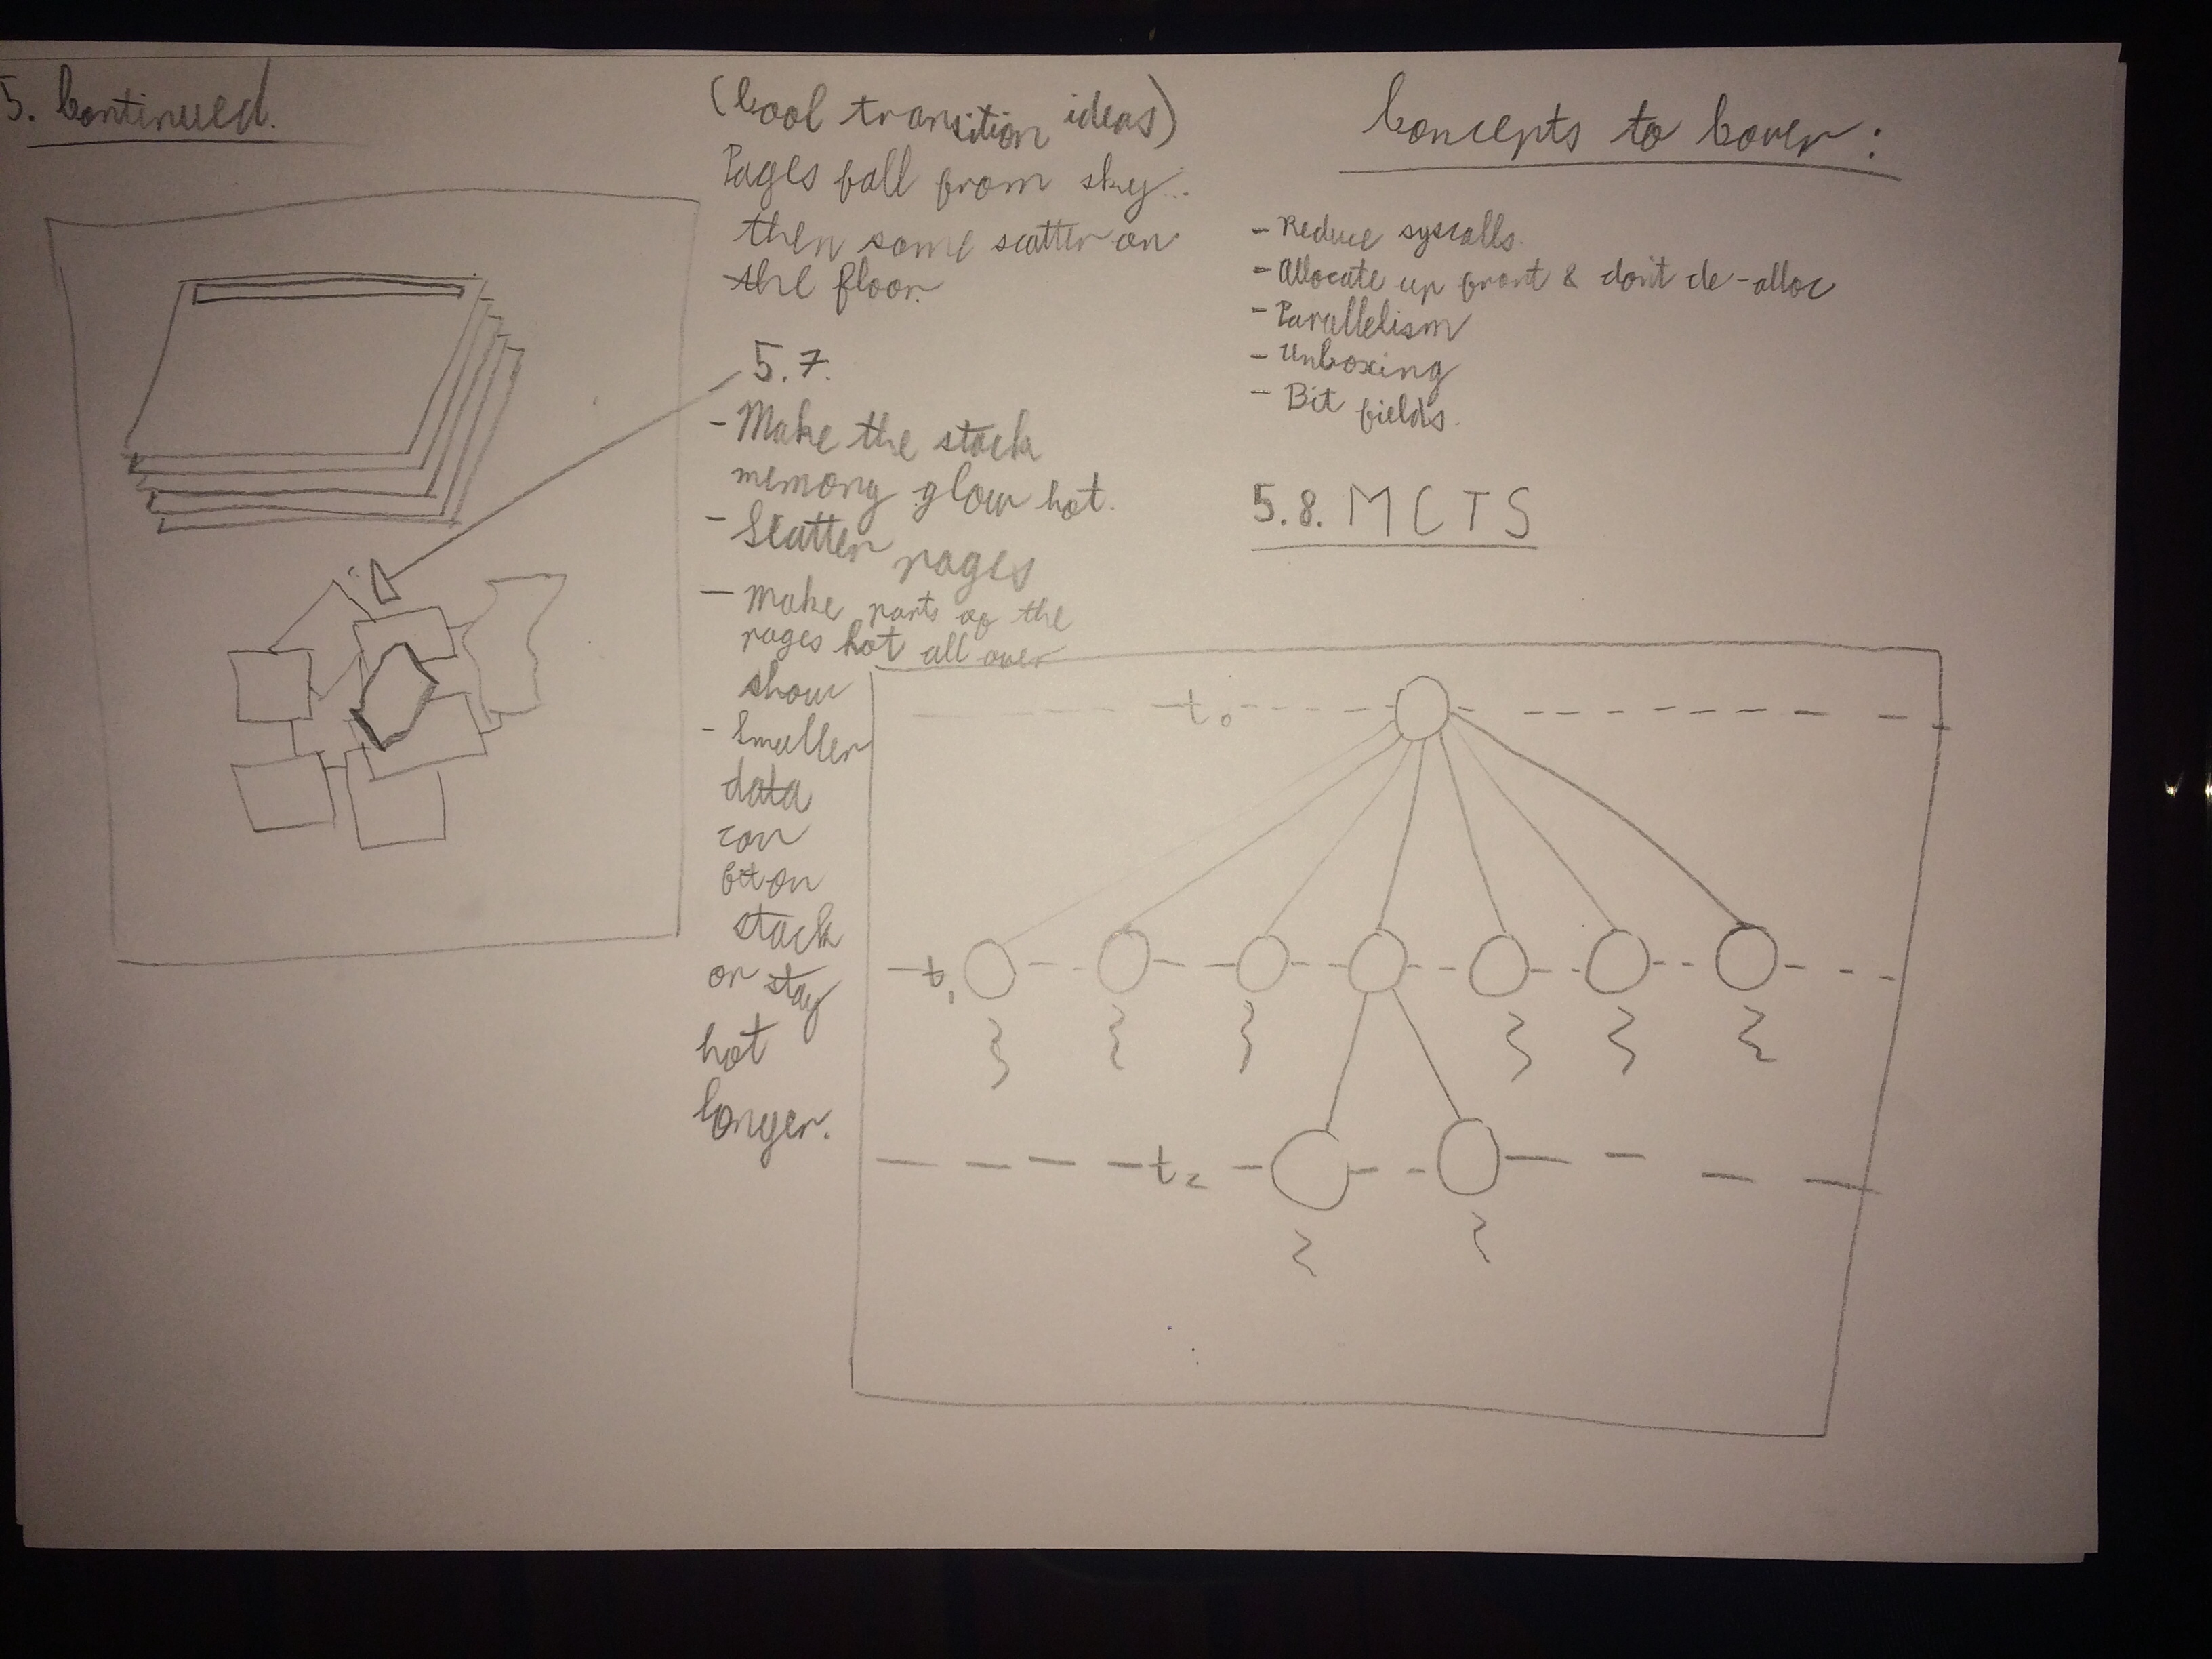 5. Continued.
(Cool transition ideas)
Pages fall from sky..
then some scatter on
the floor.
5.7.
- Make the stack
memory glow hot.
- Scatter pages
- Make parts of the
pages hot all over
show
- Smaller
data
can
fit on
stack
or stay
hot
longer.
Concepts to Cover:
- Reduce syscalls.
- Allocate up front & don't de-alloc
- Parallelism
- Unboxing
- Bit fields.
5.8. MCTS
t0
t1
t2